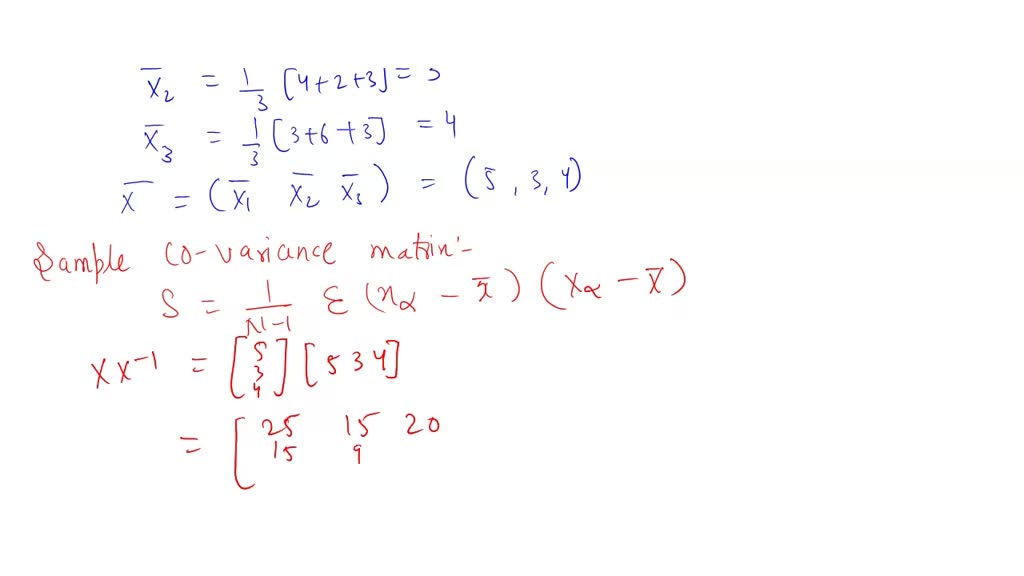 X̄₂ = 1/3 [4+2+3] = 3
X̄₃ = 1/3 [3+6+3] = 4
X̄ = (X̄₁ X̄₂ X̄₃) = (5, 3, 4)
Sample Co-variance matrin:-
S = 1/(N-1) Ɛ (xα - x̄) (Xα - X̄)
XX⁻¹ = [5 3 4] [5 3 4]
= [25 15 20
15 9